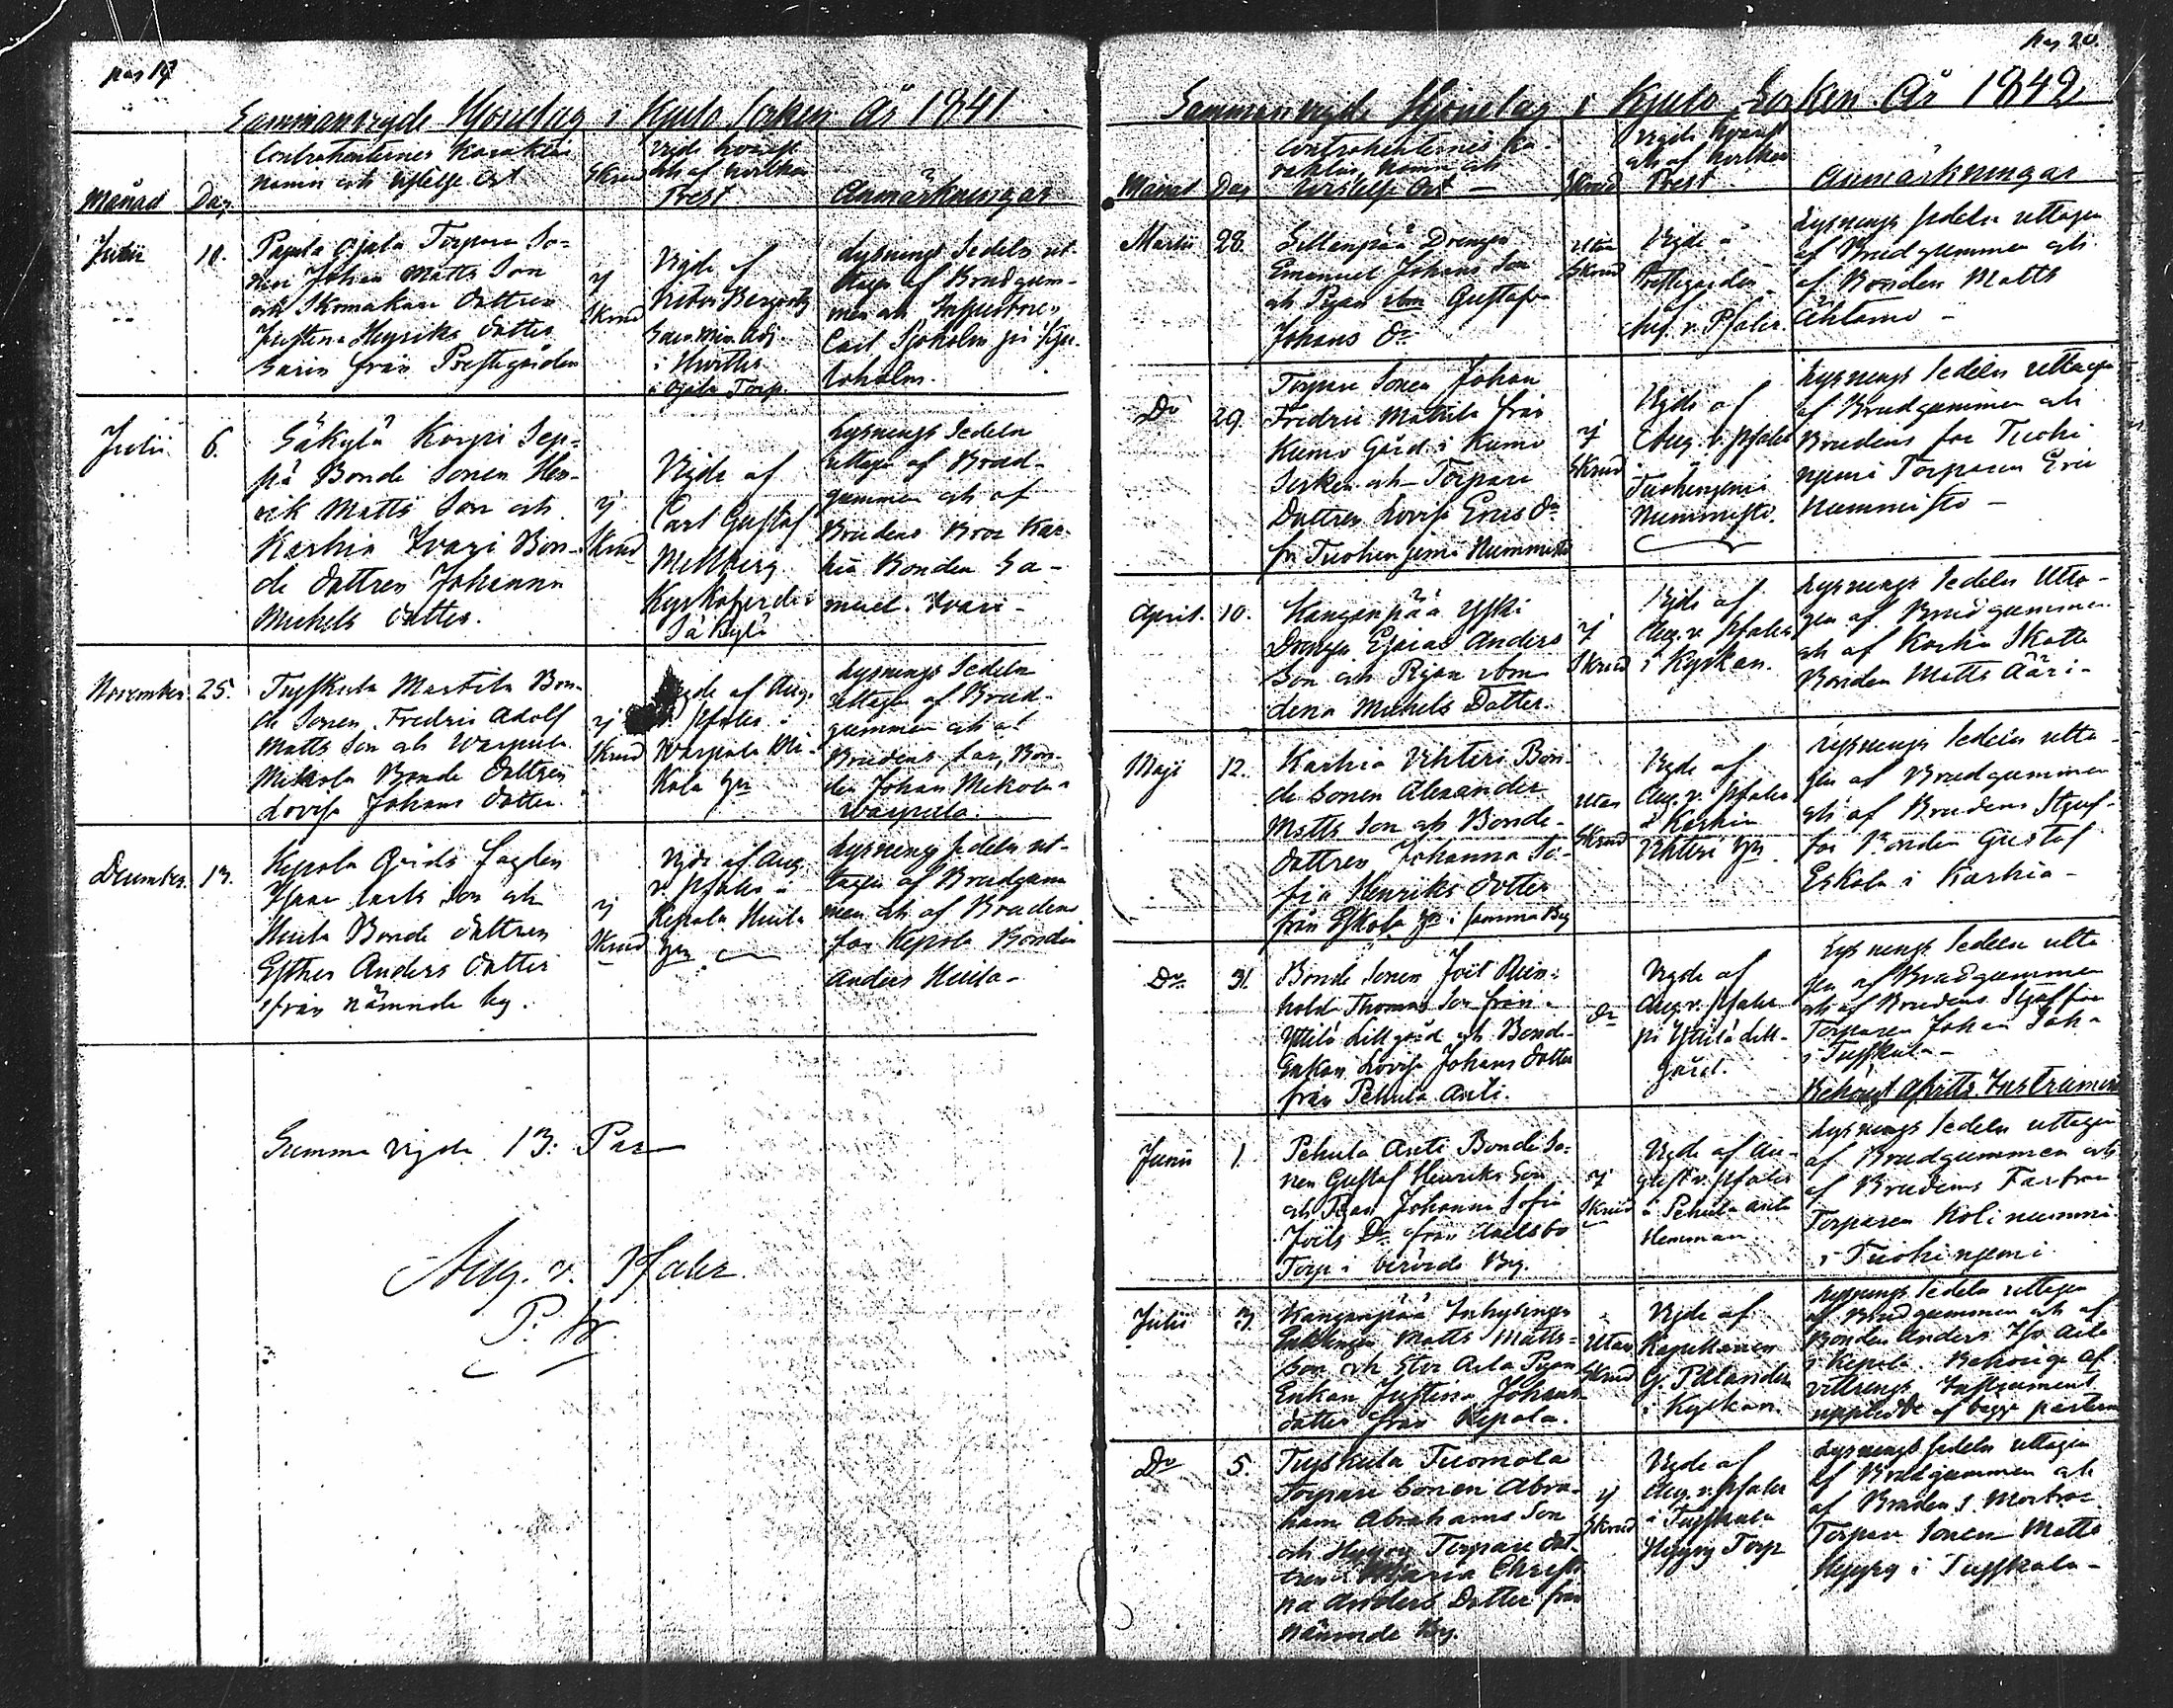 pag 19
Sammanvigde Hjonelag i Kjulo Socken År 1841
Månad
Dag
Contrahenternes Karakter
Namn och vistelse Ort
Skrud
Vigde hvarest
och af hvilken
Prest
Anmärkningar
Junii
10.
Pajula Ojala Torpare So-
nen Johan Matts Son
och Skomakare dottren
Justina Henriks dotter
från Prestegården
ij
Skrud
Vigde af
i Ojala Torp.
Lysnings Sedeln ut-
tagen af Brudgum-
men och Inspectoren
Carl Sjöholm på Kju-
loholm.
Julii
6.
Säkylä Korpi Sep-
pä Bonde Sonen Hen-
rik Matts Son och
Karhia Ivari Bon-
de dottren Johanna
Michels dotter.
ij
Skrud
Vigde af
Carl Gustaf
Mellberg
Kyrkoherde i
Säkylä
Lysnings Sedeln
uttagen af Brud-
gummen och af
Brudens Bror Kar-
hia Bonden Sa-
muel Ivari -
November
25.
Tuiskula Martila Bon-
de Sonen Fredric Adolf
Matts Son och Warpula
Mikola Bonde dottren
Lovisa Johans dotter.
ij
Skrud
Vigde af Aug.
v. Pfaler i
Warpula Mi-
kola
Lysnings Sedeln
uttagen af Brud-
gummen och af
Brudens far, Bon-
den Johan Mikola i
Warpula.
December
13.
Kepola
Isaac Isaks Son och
Heila Bonde dottren
Esther Anders dotter
från nämnde by.
ij
Skrud
Vigde af Aug.
v. Pfaler i
Kepola Heila
Lysnings sedeln ut-
tagen af Brudgum
men och af Brudens
far Kepola Bonden
Anders Heila -
Summa vigde 13: Par
Aug. v. Pfaler
pag 20.
Sammanvigde Hjonelag i Kjulo Socken År 1842
Månad
Dag
Contrahenternes Ka-
rakter, Namn och
vistelse Ort -
Skrud
Vigde hvarest
och af hvilken
Prest
Anmärkningar
Martii
28.
Drengen
Emanuel Johans Son
och Pigan ibm Gustafva
Johans Dr
Utan
Skrud
Vigde i
Prestegården
Aug. v. Pfaler.
Lysnings sedeln uttagen
af Brudgummen och
af Bonden Matts
Ähtamo -
Do
29.
Torpare Sonen Johan
Fredric Mattila från
Kumo Gård i Kumo
Socken och Torpare
Dottren Lovisa Erics Dr
fr Tuohiniemi Nummisto
ij
Skrud
Vigde af
Aug. v. Pfaler
i
Tuohiniemi
Nummisto.
Lysnings Sedeln uttagen
af Brudgummen och
Brudens far Tuohi
niemi Torparen Eric
Nummisto -
April.
10.
Kanganpää Yski
Drengen Esaias Anders
Son och Pigan ibm
Michels Dotter.
ij
Skrud
Vigde af
Aug. v. Pfaler
i Kyrkan.
Lysnings Sedeln Utta-
gen af Brudgummen
och af Karhia Skatte
Bonden Matts Ääri -
Maji
12.
Karhia Uhteri Bon-
de Sonen Alexander
Matts Son och Bonde-
dottren Johanna So-
fia Henriks dotter
från Eskola i samma By
Utan
Skrud
Vigde af
Aug. v. Pfaler
i Karhia
Uhteri
Lysnings Sedeln utta-
gen af Brudgummen
och af Brudens Stjuf-
far Bonden Gustaf
Eskola i Karhia -
Do
31.
Bonde Sonen Joël Rein-
hold Thomas Son från
Yttilä Lillgård och Bonde-
Enkan Lovisa Johans dotter
från Pehula Anti.
do
Vigde af
Aug. v. Pfaler
på Yttilä Lill-
gård.
Lysnings Sedeln utta
gen af Brudgummen
och af Brudens Stjuffar
Torparen Johan
i Tuiskula -
Behörigt Afvitts. Instrument
Junii
1.
Pehula Anti Bonde So-
nen Gustaf Henriks Son
och Pigan Johanna Sofia
Joëls Dr från
Torp i berörde By.
ij
Skrud
Vigde af Au-
gust v. Pfaler
i Pehula Anti
Hemman
Lysnings Sedeln uttagen
af Brudgummen och
af Brudens Farbror
Torparen Kolinummi
i Tuohiniemi
Julii
3.
Kanganpää Inhysingen
Enklingen Matts Matts-
Son och Pigan
Enkan Justina Johans
dotter från Kepola.
Utan
Skrud
Vigde af
Kapellanen
G. Palander
i Kyrkan.
Lysnings Sedeln uttagen
af Brudgummen och af
Bonden Anders
i Kepola. Behöriga af
vittrings Instrument
uppledde af begge parterne
Do
5.
Tuiskula Tuomola
Torpare Sonen Abra-
ham Abrahams Son
och Hyypy Torpare dot-
tren Maria Christi
na Anders Dotter från
nämnde By.
ij
Skrud
Vigde af
Aug. v. Pfaler
i Tuiskula
Hyypy Torp
Lysnings sedeln uttagen
af Brudgummen och
af Brudens Morbror
Torpare Sonen Matts
Hyypy i Tuiskula -